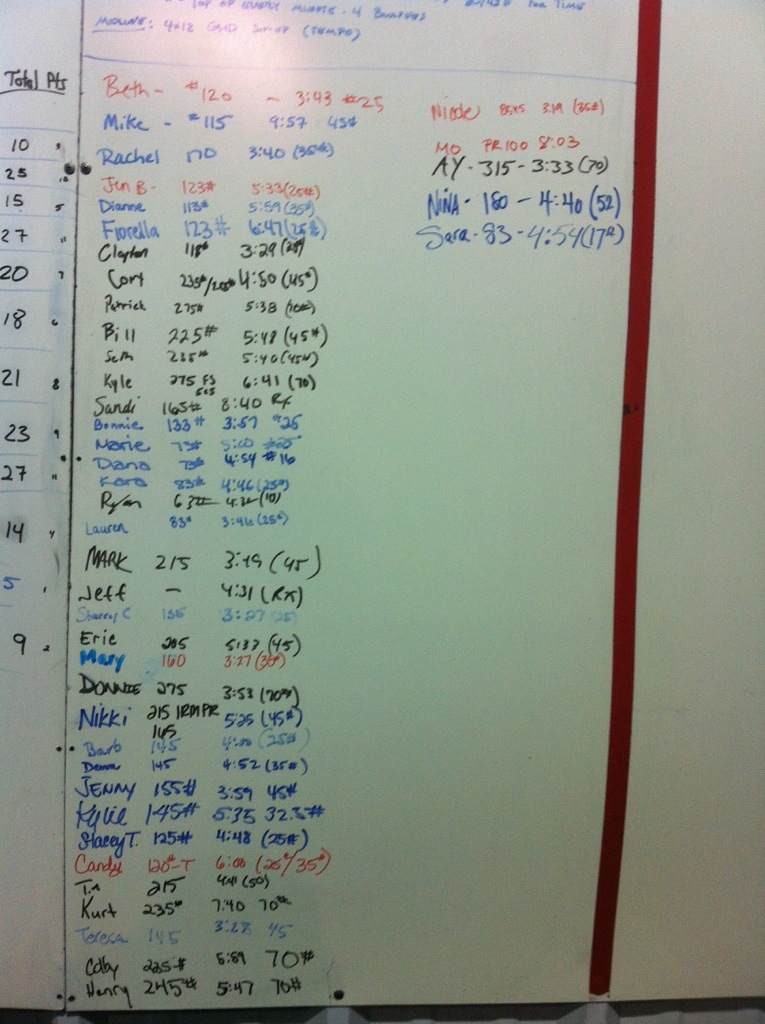 4 Burpees For Time
MIDLINE: 4x12 GHD Sit-up (TEMPO)
Total Pts
10
25
15 5
27 11
20 7
18 6
21 8
23 9
27 11
14 4
5 1
9 2
Beth - #120 - 3:43 #25
Mike - #115 9:57 45#
Rachel 170 3:40 (35#)
Jen B - 123# 5:33 (25#)
Dianne 113# 5:59 (35#)
Fiorella 123# 6:47 (25#)
Clayton 118# 3:29
Cory 235#/205# 4:50 (45#)
Patrick 275# 5:38 (70#)
Bill 225# 5:48 (45#)
Seth 235# 5:40 (45#)
Kyle 275 FS 6:41 (70)
Sandi 165# 8:40 Rx
Bonnie 133# 3:57 #25
Marie 73# 5:00 #25
Dana 73# 4:54 #16
Kara 83# 4:46 (25#)
Ryan
Lauren 83# 3:46 (25#)
MARK 215 3:49 (45)
Jeff - 4:31 (RX)
Stacey C 135 3:27 (25)
Eric 205 5:33 (45)
Mary 160 3:27 (35#)
DONNIE 275 3:53 (70#)
Nikki 215 1RM PR 5:25 (45#)
165
Barb 145 4:00 (25#)
145 4:52 (35#)
JENNY 155# 3:59 45#
Kylie 145# 5:35 32.5#
Stacey T. 125# 4:48 (25#)
Candy 120#-T 6:08 (25#/35#)
215 4:41 (50)
Kurt 235# 7:40 70#
Teresa 145 3:28 45
Colby 225# 5:59 70#
Henry 245# 5:47 70#
Nicole 85x5 3:19 (35#)
MO PR100 8:03
AY - 315 - 3:33 (70)
NiNA - 180 - 4:40 (52)
Sara - 83 - 4:54 (17#)